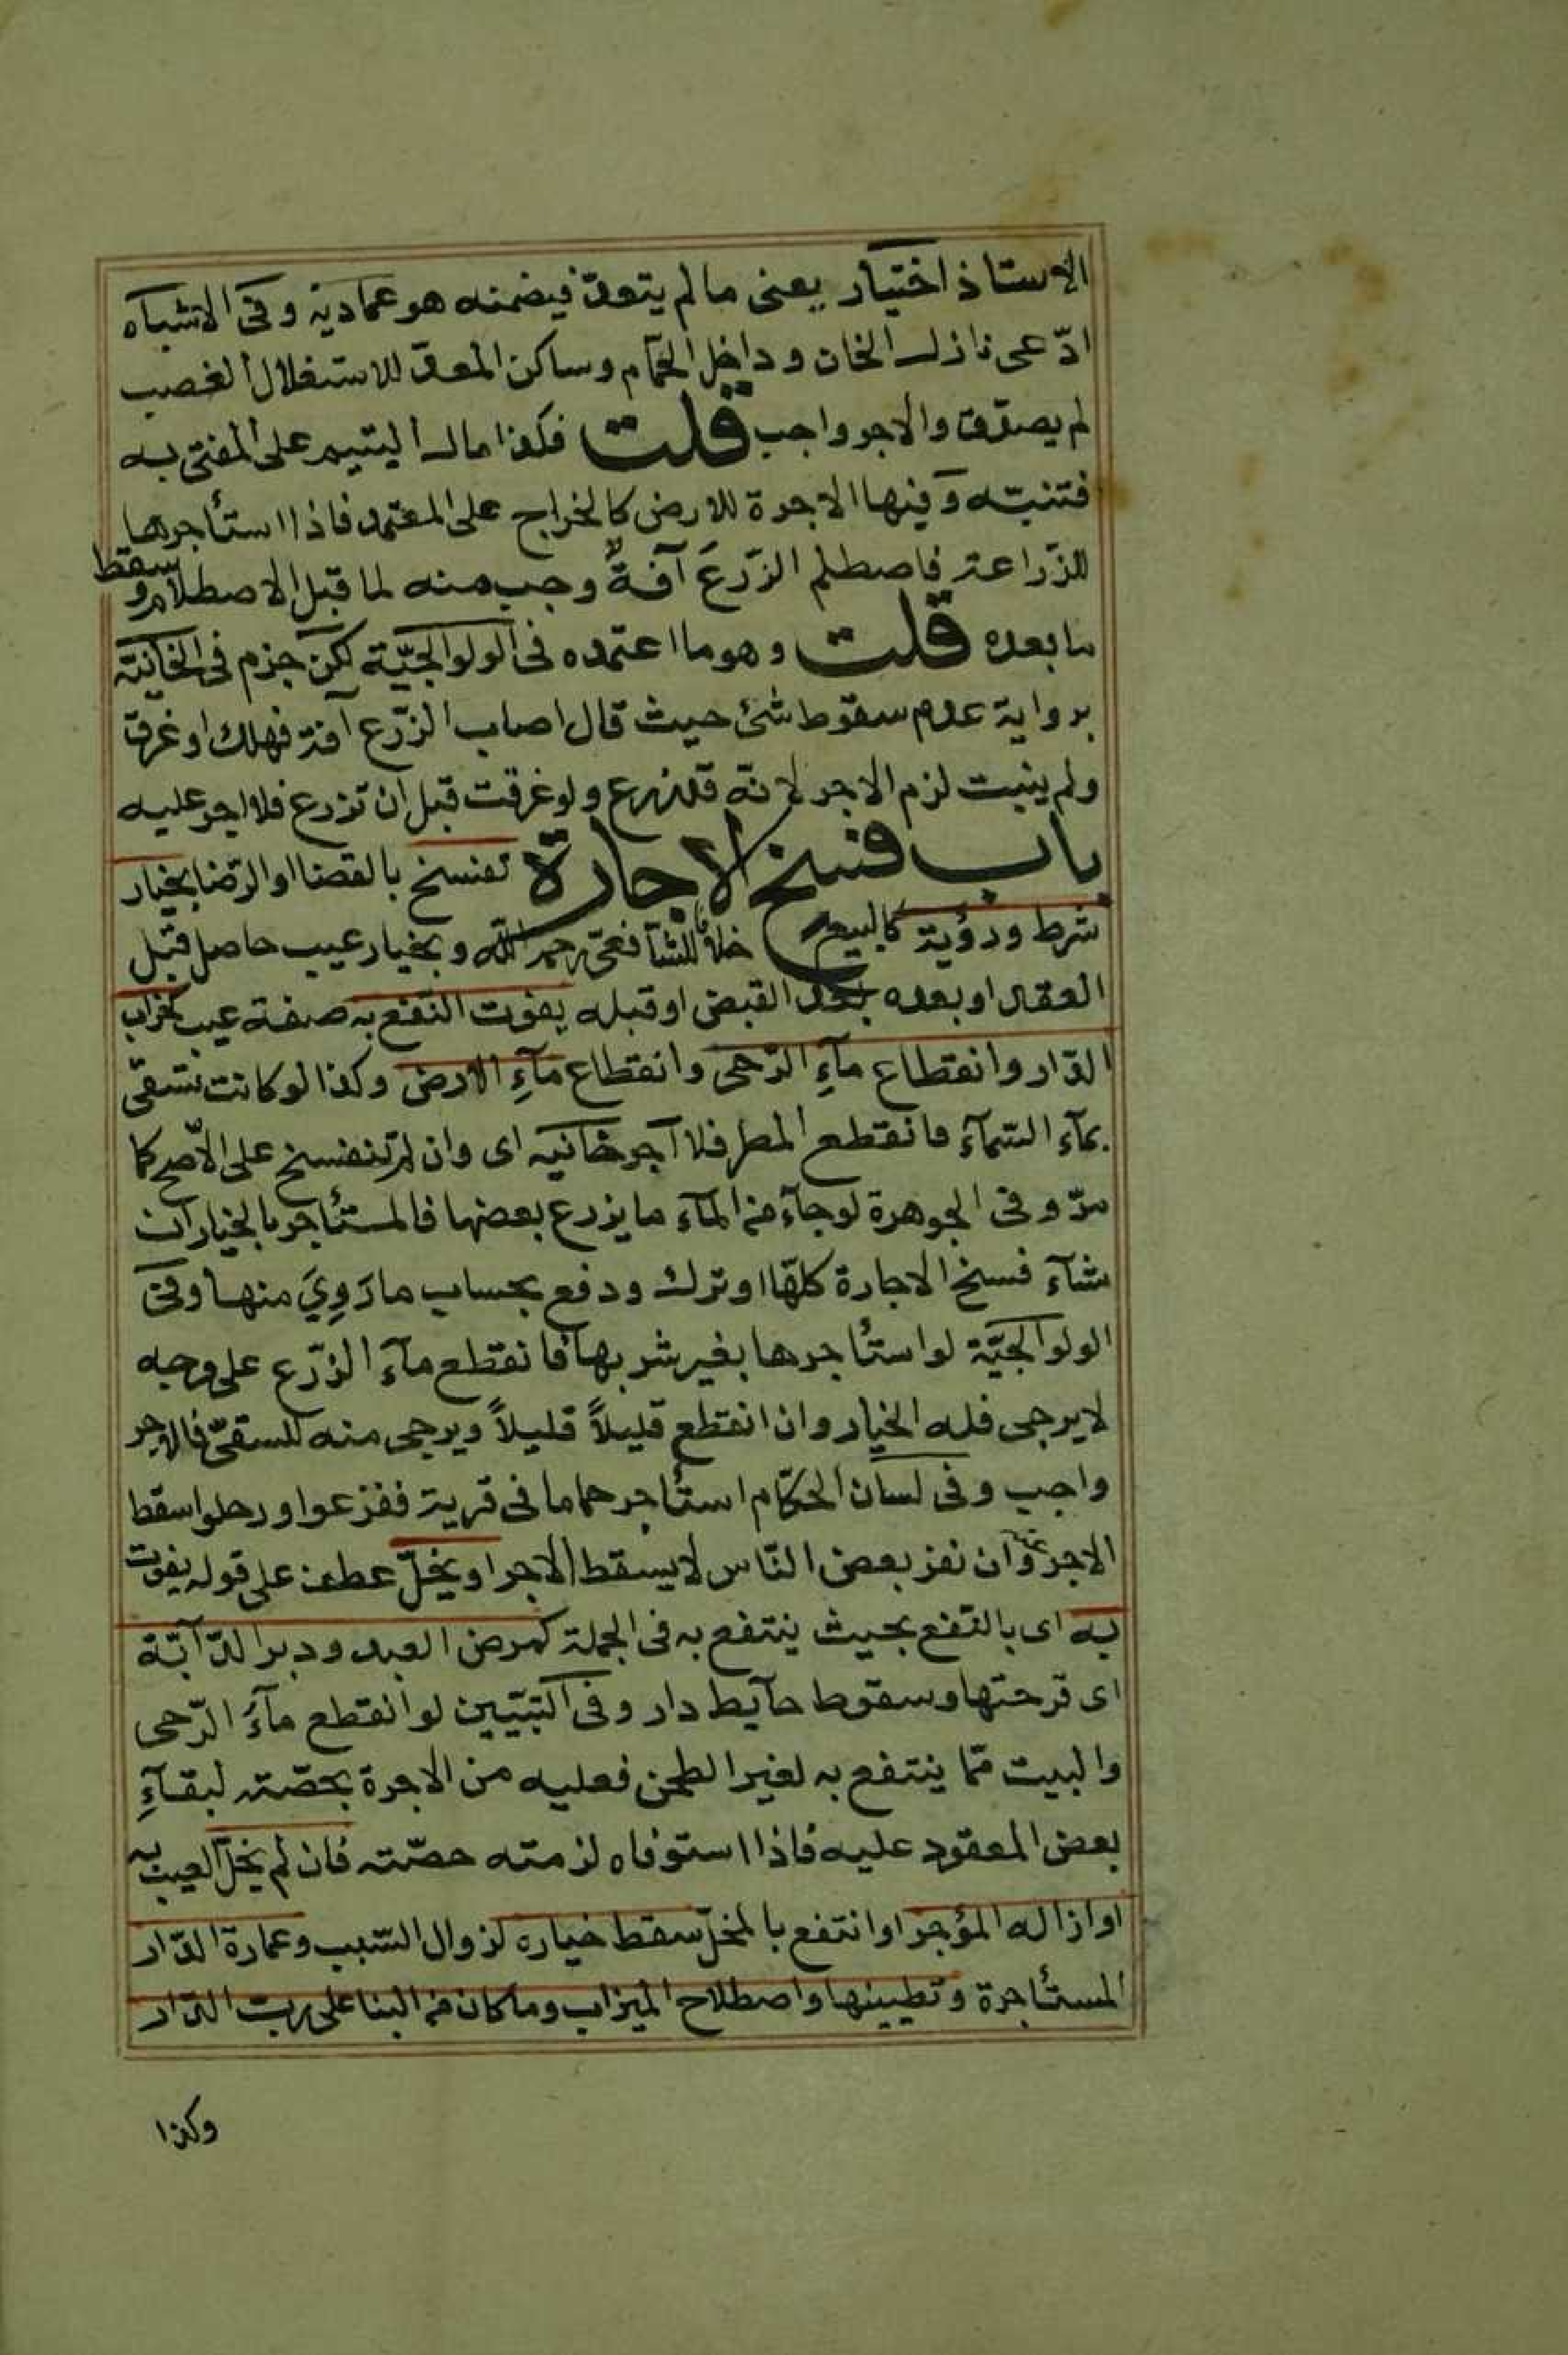 الاستاذ اختيار يعنى مالم يتعدّ فيضمنه هو عمادية وفى الاشباه
ادّعى نازل الخان وداخل الحمّام وساكن المعدّ للاستغلال الغصب
لم يصدّق والاجر واجب قلت فكذا مال اليتيم على المفتى به
فتنبّه وفيها الاجرة للارض كالخراج على المعتمد فاذا استأجرها
للزّراعة فاصطلم الزّرعَ آفةٌ وجب منه لما قبل الاصطلام وسقط
ما بعده قلت وهو ما اعتمده فى الولوالجيّة لكن جزم فى الخانيّة
برواية عدم سقوط شئ حيث قال اصاب الزّرع آفة فهلك او غرق
ولم ينبت لزم الاجر لانّه قد زرع ولو غرقت قبل ان تزرع فلا اجر عليه
باب فسخ الاجارة تفسخ بالقضا او الرّضا بخيار
شرط ورؤية كالبيع خلافا للشّافعىّ رحمه الله وبخيار عيب حاصل قبل
العقد او بعده بعد القبض او قبله يفوت النّفع به صفة عيب كخراب
الدّار وانقطاع مآءِ الرّحى وانقطاع مآءِ الارض وكذا لو كانت تسقى
بمآء السّمآء فانقطع المطر فلا اجر خانيه اى وان لم تنفسخ على الاصّح كما
مرّ وفى الجوهرة لو جآء من المآء ما يزرع بعضها فالمستأجر بالخيار ان
شآء فسخ الاجارة كلّها او ترك ودفع بحساب ما رَوِيَ منها وفى
الولوالجيّة لو استأجرها بغير شربها فانقطع مآء الزّرع على وجه
لا يرجى فله الخيار وان انقطع قليلاً قليلاً ويرجى منه السقىّ فالاجر
واجب وفى لسان الحكّام استأجر حماما فى قرية ففزعوا ورحلوا سقط
الاجر وان نفر بعض النّاس لا يسقط الاجر او يخلّ عطف على قوله يفوت
به اى بالنّفع بحيث ينتفع به فى الجملة كمرض العبد ودبر الدّآبّة
اى قرحتها وسقوط حآيط دار وفى التبيّين لو انقطع مآءُ الرّحى
والبيت ممّا ينتفع به لغير الطحن فعليه من الاجرة بحصّته لبقآءِ
بعض المعقود عليه فاذا استوفاه لزمته حصّته فان لم يخلّ العيب به
او ازاله المؤجر او انتفع بالمخلّ سقط خياره لزوال السّبب وعمارة الدّار
المستأجرة وتطيينها واصطلاح الميزاب وما كان من البنا على ربّ الدّار
وكذا